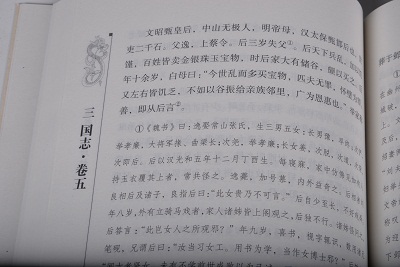 三国志·卷五
文昭甄皇后，中山无极人，明帝母，汉太保甄邯后也
吏二千石。父逸，上蔡令。后三岁失父①。后天下兵乱
馑，百姓皆卖金银珠玉宝物，时后家大有储谷，颇以买之
年十余岁，白母曰：“今世乱而多买宝物，匹夫无罪，怀璧为
又左右皆饥乏，不如以谷振给亲族邻里，广为恩惠也。”举
善，即从后言②。
①《魏书》曰：逸娶常山张氏，生三男五女：长男豫，早终
举孝廉，大将军掾、曲梁长；次尧，举孝廉；长女姜，次脱，次道，次
次即后。后以汉光和五年十二月丁酉生。每寝寐，家中仿佛见
持玉衣覆其上者，常共怪之。逸薨，加号慕，内外益奇之。后相
良相后及诸子，良指后曰：“此女贵乃不可言。”后自少至长，不好
年八岁，外有立骑马戏者，家人诸姊皆上阁观之，后独不行。诸姊怪
后答言：“此岂女人之所观邪？”年九岁，喜书，视字辄识，数用诸
笔砚，兄谓后曰：“汝当习女工。用书为学，当作女博士邪？”